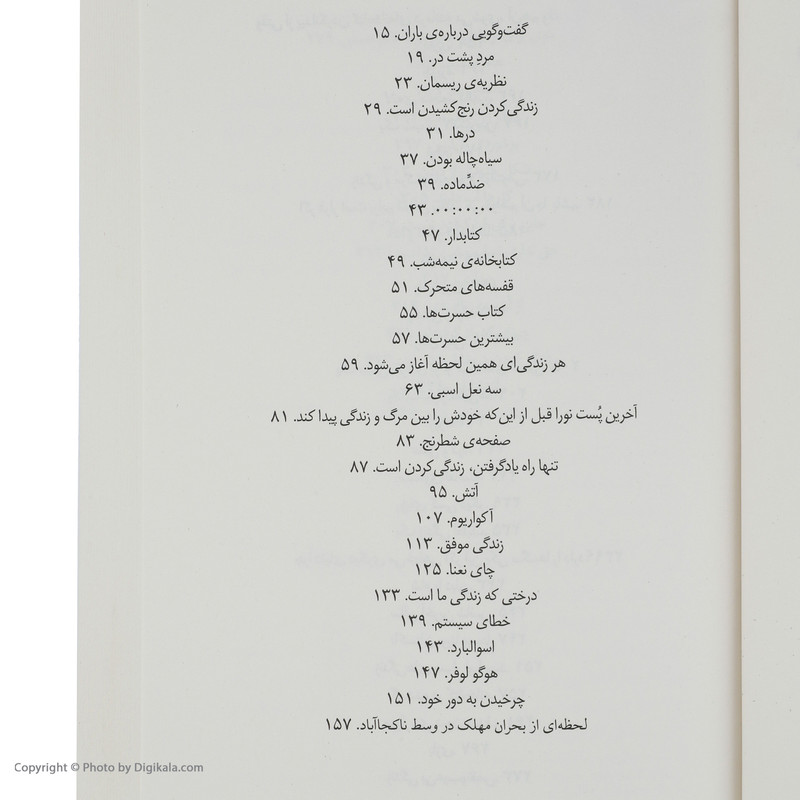 گفت‌وگویی درباره‌ی باران. ۱۵
مردِ پشت در. ۱۹
نظریه‌ی ریسمان. ۲۳
زندگی‌کردن رنج‌کشیدن است. ۲۹
درها. ۳۱
سیاه‌چاله بودن. ۳۷
ضدِّماده. ۳۹
۰۰:۰۰:۰۰. ۴۳
کتابدار. ۴۷
کتابخانه‌ی نیمه‌شب. ۴۹
قفسه‌های متحرک. ۵۱
کتاب حسرت‌ها. ۵۵
بیشترین حسرت‌ها. ۵۷
هر زندگی‌ای همین لحظه آغاز می‌شود. ۵۹
سه نعل اسبی. ۶۳
آخرین پُست نورا قبل از این‌که خودش را بین مرگ و زندگی پیدا کند. ۸۱
صفحه‌ی شطرنج. ۸۳
تنها راه یادگرفتن، زندگی‌کردن است. ۸۷
آتش. ۹۵
آکواریوم. ۱۰۷
زندگی موفق. ۱۱۳
چای نعنا. ۱۲۵
درختی که زندگی ما است. ۱۳۳
خطای سیستم. ۱۳۹
اسوالبارد. ۱۴۳
هوگو لوفر. ۱۴۷
چرخیدن به دور خود. ۱۵۱
لحظه‌ای از بحران مهلک در وسط ناکجاآباد. ۱۵۷
Copyright © Photo by Digikala.com